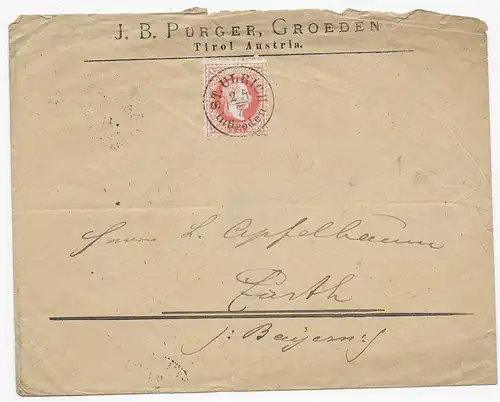 J. B. PURGER, GROEDEN
Tirol Austria.
ST. ULRICH
2/5
in Gröden
Herrn L. Apfelbaum
Fürth
j: Bayern:j